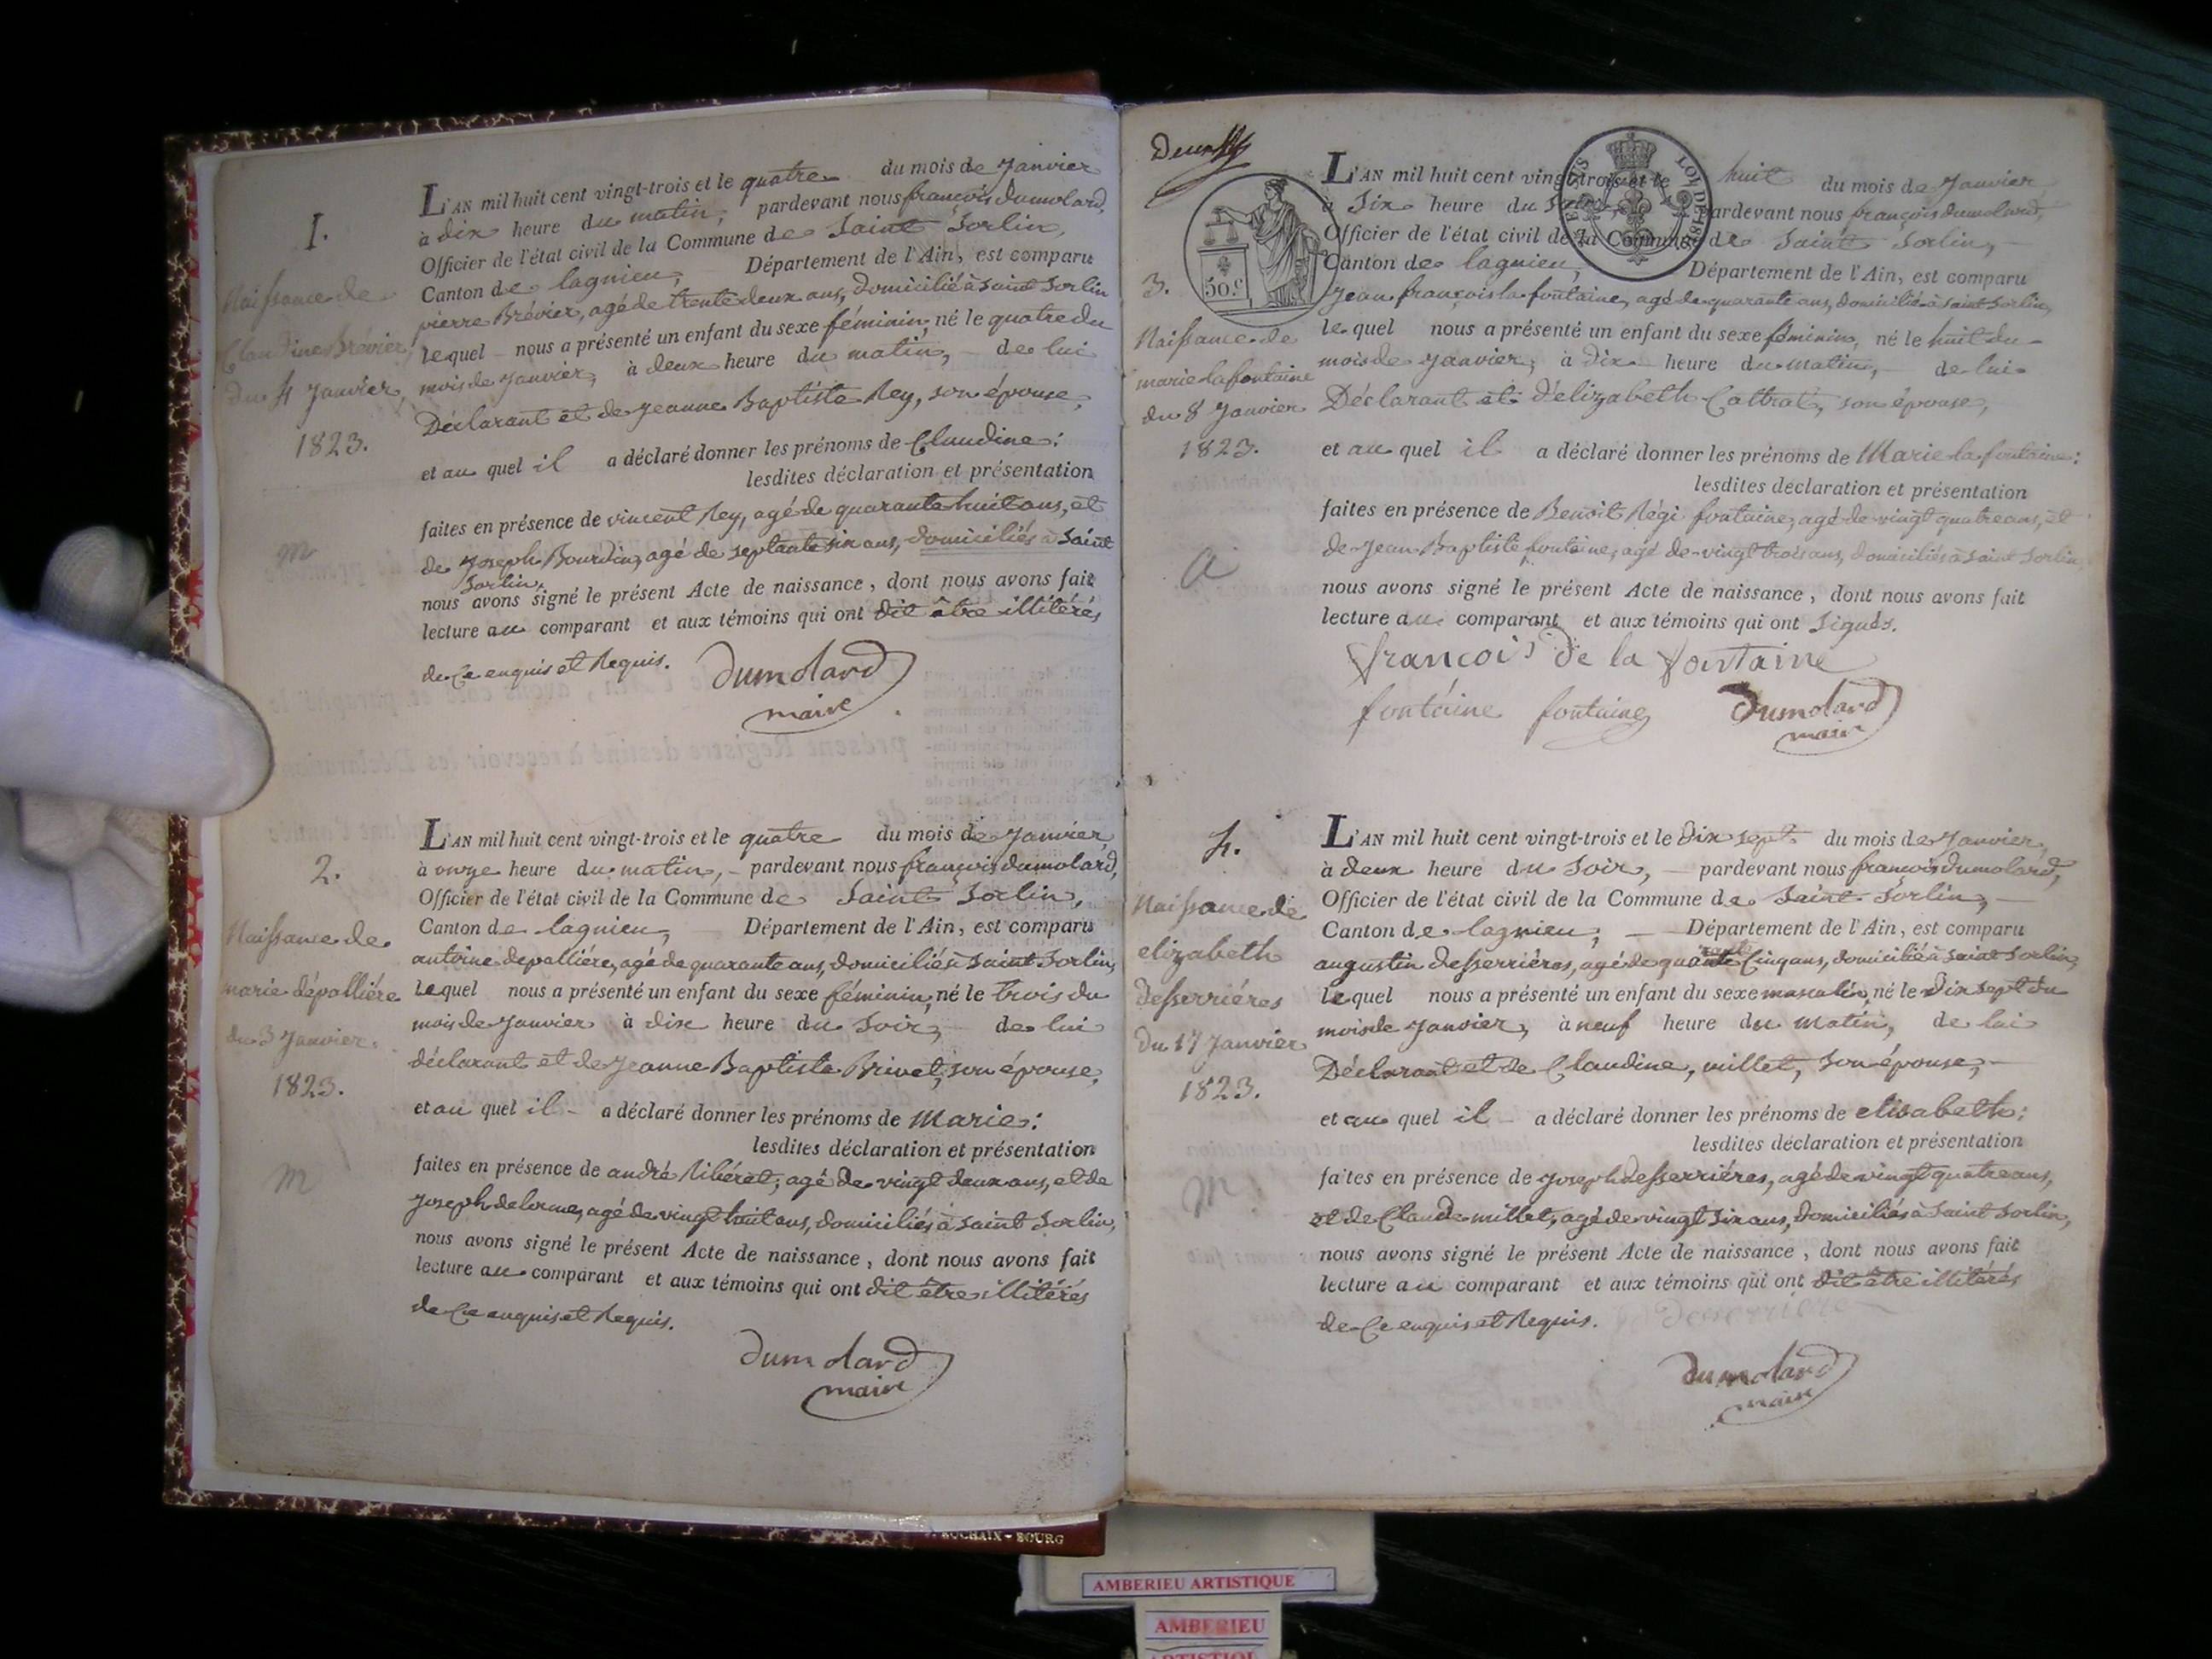 I.
Naissance de
Claudine Brévier,
du 4 Janvier,
1823.
m
L'AN mil huit cent vingt-trois et le quatre du mois de Janvier
à dix heure du matin, pardevant nous françois dumolard,
Officier de l'état civil de la Commune de Saint Sorlin,
Canton de lagnieu, Département de l'Ain, est comparu
pierre Brévier, agé de trente deux ans, domicilié à Saint Sorlin
lequel nous a présenté un enfant du sexe féminin, né le quatre du
mois de Janvier, à deux heure du matin, de lui
Déclarant et de Jeanne Baptiste Rey, son épouse,
et au quel il a déclaré donner les prénoms de Claudine:
lesdites déclaration et présentation
faites en présence de vincent Rey, agé de quarante huit ans, et
de Joseph Bourdin, agé de septante six ans, domiciliés à Saint
Sorlin,
nous avons signé le présent Acte de naissance, dont nous avons fait
lecture au comparant et aux témoins qui ont dit être illitérés
de Ce enquis et Requis.
dumolard
maire
2.
Naissance de
marie dépallière
du 3 Janvier.
1823.
m
L'AN mil huit cent vingt-trois et le quatre du mois de Janvier,
à onze heure du matin, pardevant nous françois dumolard,
Officier de l'état civil de la Commune de Saint Sorlin,
Canton de lagnieu, Département de l'Ain, est comparu
antoine depallière, agé de quarante ans, domicilié à Saint Sorlin,
Lequel nous a présenté un enfant du sexe féminin, né le trois du
mois de Janvier à dix heure du Soir, de lui
déclarant et de Jeanne Baptiste Brivet, son épouse,
et au quel il a déclaré donner les prénoms de Marie:
lesdites déclaration et présentation
faites en présence de andré Ribéret, agé de vingt deux ans, et de
Joseph delorme, agé de vingt huit ans, domiciliés à Saint Sorlin,
nous avons signé le présent Acte de naissance, dont nous avons fait
lecture au comparant et aux témoins qui ont dit être illitérés
de Ce enquis et Requis.
dumolard
maire
50.c
3.
Naissance de
marie lafontaine
du 8 Janvier
1823.
a
L'AN mil huit cent vingt-trois et le huit du mois de Janvier
à Six heure du Soir, pardevant nous françois dumolard,
Officier de l'état civil de la Commune de Saint Sorlin,
Canton de lagnieu, Département de l'Ain, est comparu
Jean françois la fontaine, agé de quarante ans, domicilié à Saint Sorlin,
lequel nous a présenté un enfant du sexe féminin, né le huit du
mois de Janvier, à dix heure du matin, de lui
Déclarant et d'élizabeth Cattrat, son épouse,
et au quel il a déclaré donner les prénoms de Marie la fontaine:
lesdites déclaration et présentation
faites en présence de Benoit Régi fontaine, agé de vingt quatre ans, et
de Jean Baptiste fontaine, agé de vingt trois ans, domiciliés à Saint Sorlin,
nous avons signé le présent Acte de naissance, dont nous avons fait
lecture au comparant et aux témoins qui ont Signés.
françois de la fontaine
fontaine fontaine Dumolard
maire
4.
Naissance de
elizabeth
desserriéres
du 17 Janvier
1823.
m
L'AN mil huit cent vingt-trois et le dix sept du mois de Janvier,
à deux heure du Soir, pardevant nous françois dumolard,
Officier de l'état civil de la Commune de Saint Sorlin,
Canton de lagnieu, Département de l'Ain, est comparu
augustin desserriéres, agé de quarante Cinq ans, domicilié à Saint Sorlin,
lequel nous a présenté un enfant du sexe masculin, né le dix sept du
mois de Janvier, à neuf heure du matin, de lui
Déclarant et de Claudine, millet, Son épouse,
et au quel il a déclaré donner les prénoms de elisabeth:
lesdites déclaration et présentation
faites en présence de Joseph desserriéres, agé de vingt quatre ans,
et de Claude millet, agé de vingt Six ans, domiciliés à Saint Sorlin,
nous avons signé le présent Acte de naissance, dont nous avons fait
lecture au comparant et aux témoins qui ont dit être illitérés
de Ce enquis et Requis.
dumolard
maire
BOURG
AMBERIEU ARTISTIQUE
AMBERIEU
ARTISTIQUE